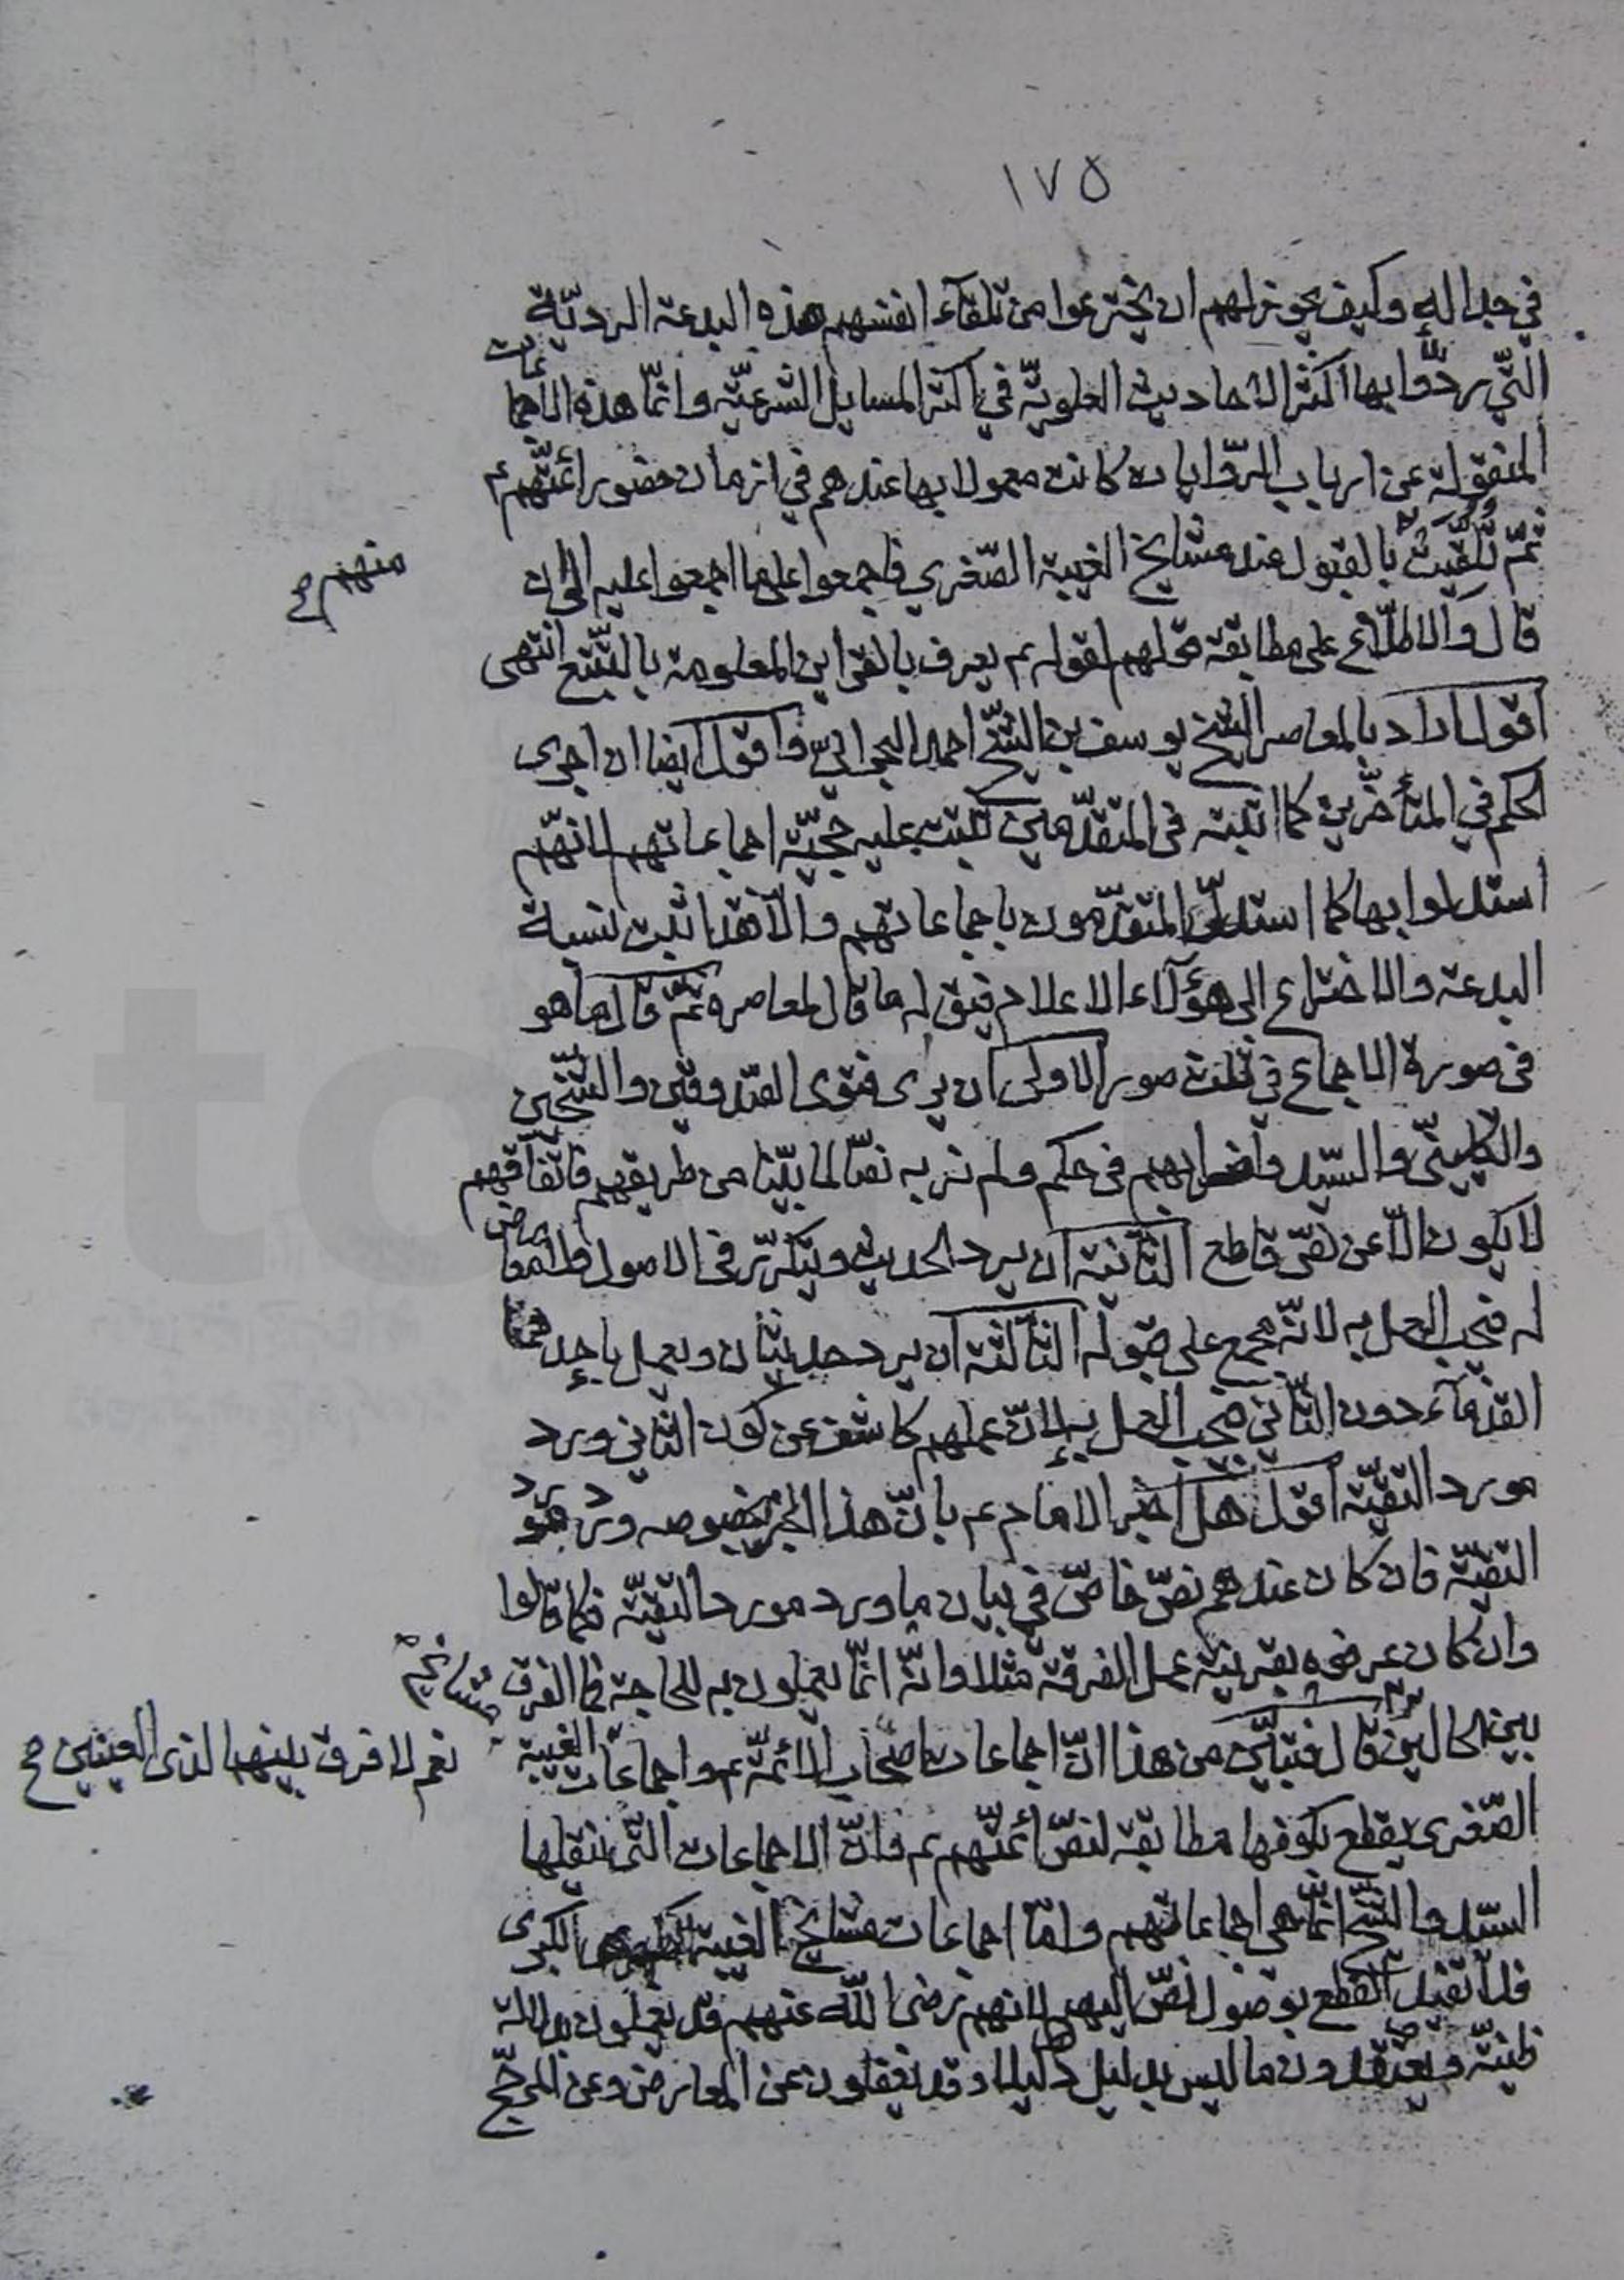 ١٧٥
في جداله وكيف يجوز لهم ان يخترعوا من تلقآء انفسهم هذه البدعة الرديّة
الّتي ردّوا بها اكثر الاحاديث العلويّة في اكثر المسايل الشرعيّة وانّما هذه الاجماعات
المنقولة عن ارباب الرّوايات كانت معمولا بها عندهم في ازمان حضور ائمّتهم ع
ثمّ تلقّيت بالقبول عند مشايخ الغيبة الصّغرى فاجمعوا على ما اجمعوا عليه الى ان
منهم صح
قال والاطّلاع على مطابقة قولهم لقوله ع يعرف بالقراين المعلومة بالتّتبّع انتهى
اقول اراد بالمعاصر الشّيخ يوسف بن الشّيخ احمد البحراني واقول ايضا ان اجرى
الحكم في المتأخّرين كما اثبته في المتقدّمين تثبت عليه حجيّة اجماعاتهم لانّهم
استدلوا بها كما استدلّ المتقدّمون باجماعاتهم والّا فقد اثبت نسبة
البدعة والاختراع الى هؤلآء الاعلام فيق له ما قال لمعاصره ثمّ قال ما هو
في صورة الاجماع في ثلث صور الاولى ان يرى فتوى الصّدوقين والشّيخين
والكلينيّ والسّيّد واضرابهم في حكم ولم نر به نصّا لما بيّنا من طريقهم فاتّفاقهم
لا يكون الّا عن نصّ قاطع الثّانية ان يرد الحديث ويتكرّر في الاصول ولا معارض
له فيجب العمل به لانّه مجمع على قبوله الثّالثة ان يرد حديثان ويعمل باحدهما
القدمآء دون الثّاني فيجب العمل به لانّ عملهم كاشف عن كون الثاني ورد
مورد التقيّة اقول هل اخبر الامام ع بانّ هذا الخبر بخصوصه ورد مورد
التقيّة فان كان عندهم نصّ خاصّ في بيان ما ورد مورد التقيّة فكما قالوا
وان كان عرفوه بقرينة عمل الفرقة مثلا وانّه انّما يعملون به للحاجة فما الفرق
بين الحالين قال فتبيّن من هذا انّ اجماعات اصحاب الائمّة ع واجماعات مشايخهم الغيبة
نعم لا فرق بينهما لذى العينين صح
الصّغرى يقطع بكونها مطابقة لنصّ ائمّتهم ع فانّ الاجماعات التّي ينقلها
السّيّد والشّيخ انّما هي اجماعاتهم وامّا اجماعات مشايخ الغيبة الكبرى
فلا تفيد القطع بوصول نصّ اليهم لانهم رضى اللّه عنهم قد يعملون بدلالة
ظنيّة ويعتقدون ما ليس بدليل دليلا وقد يغفلون عن المعارض وعن المرجّح